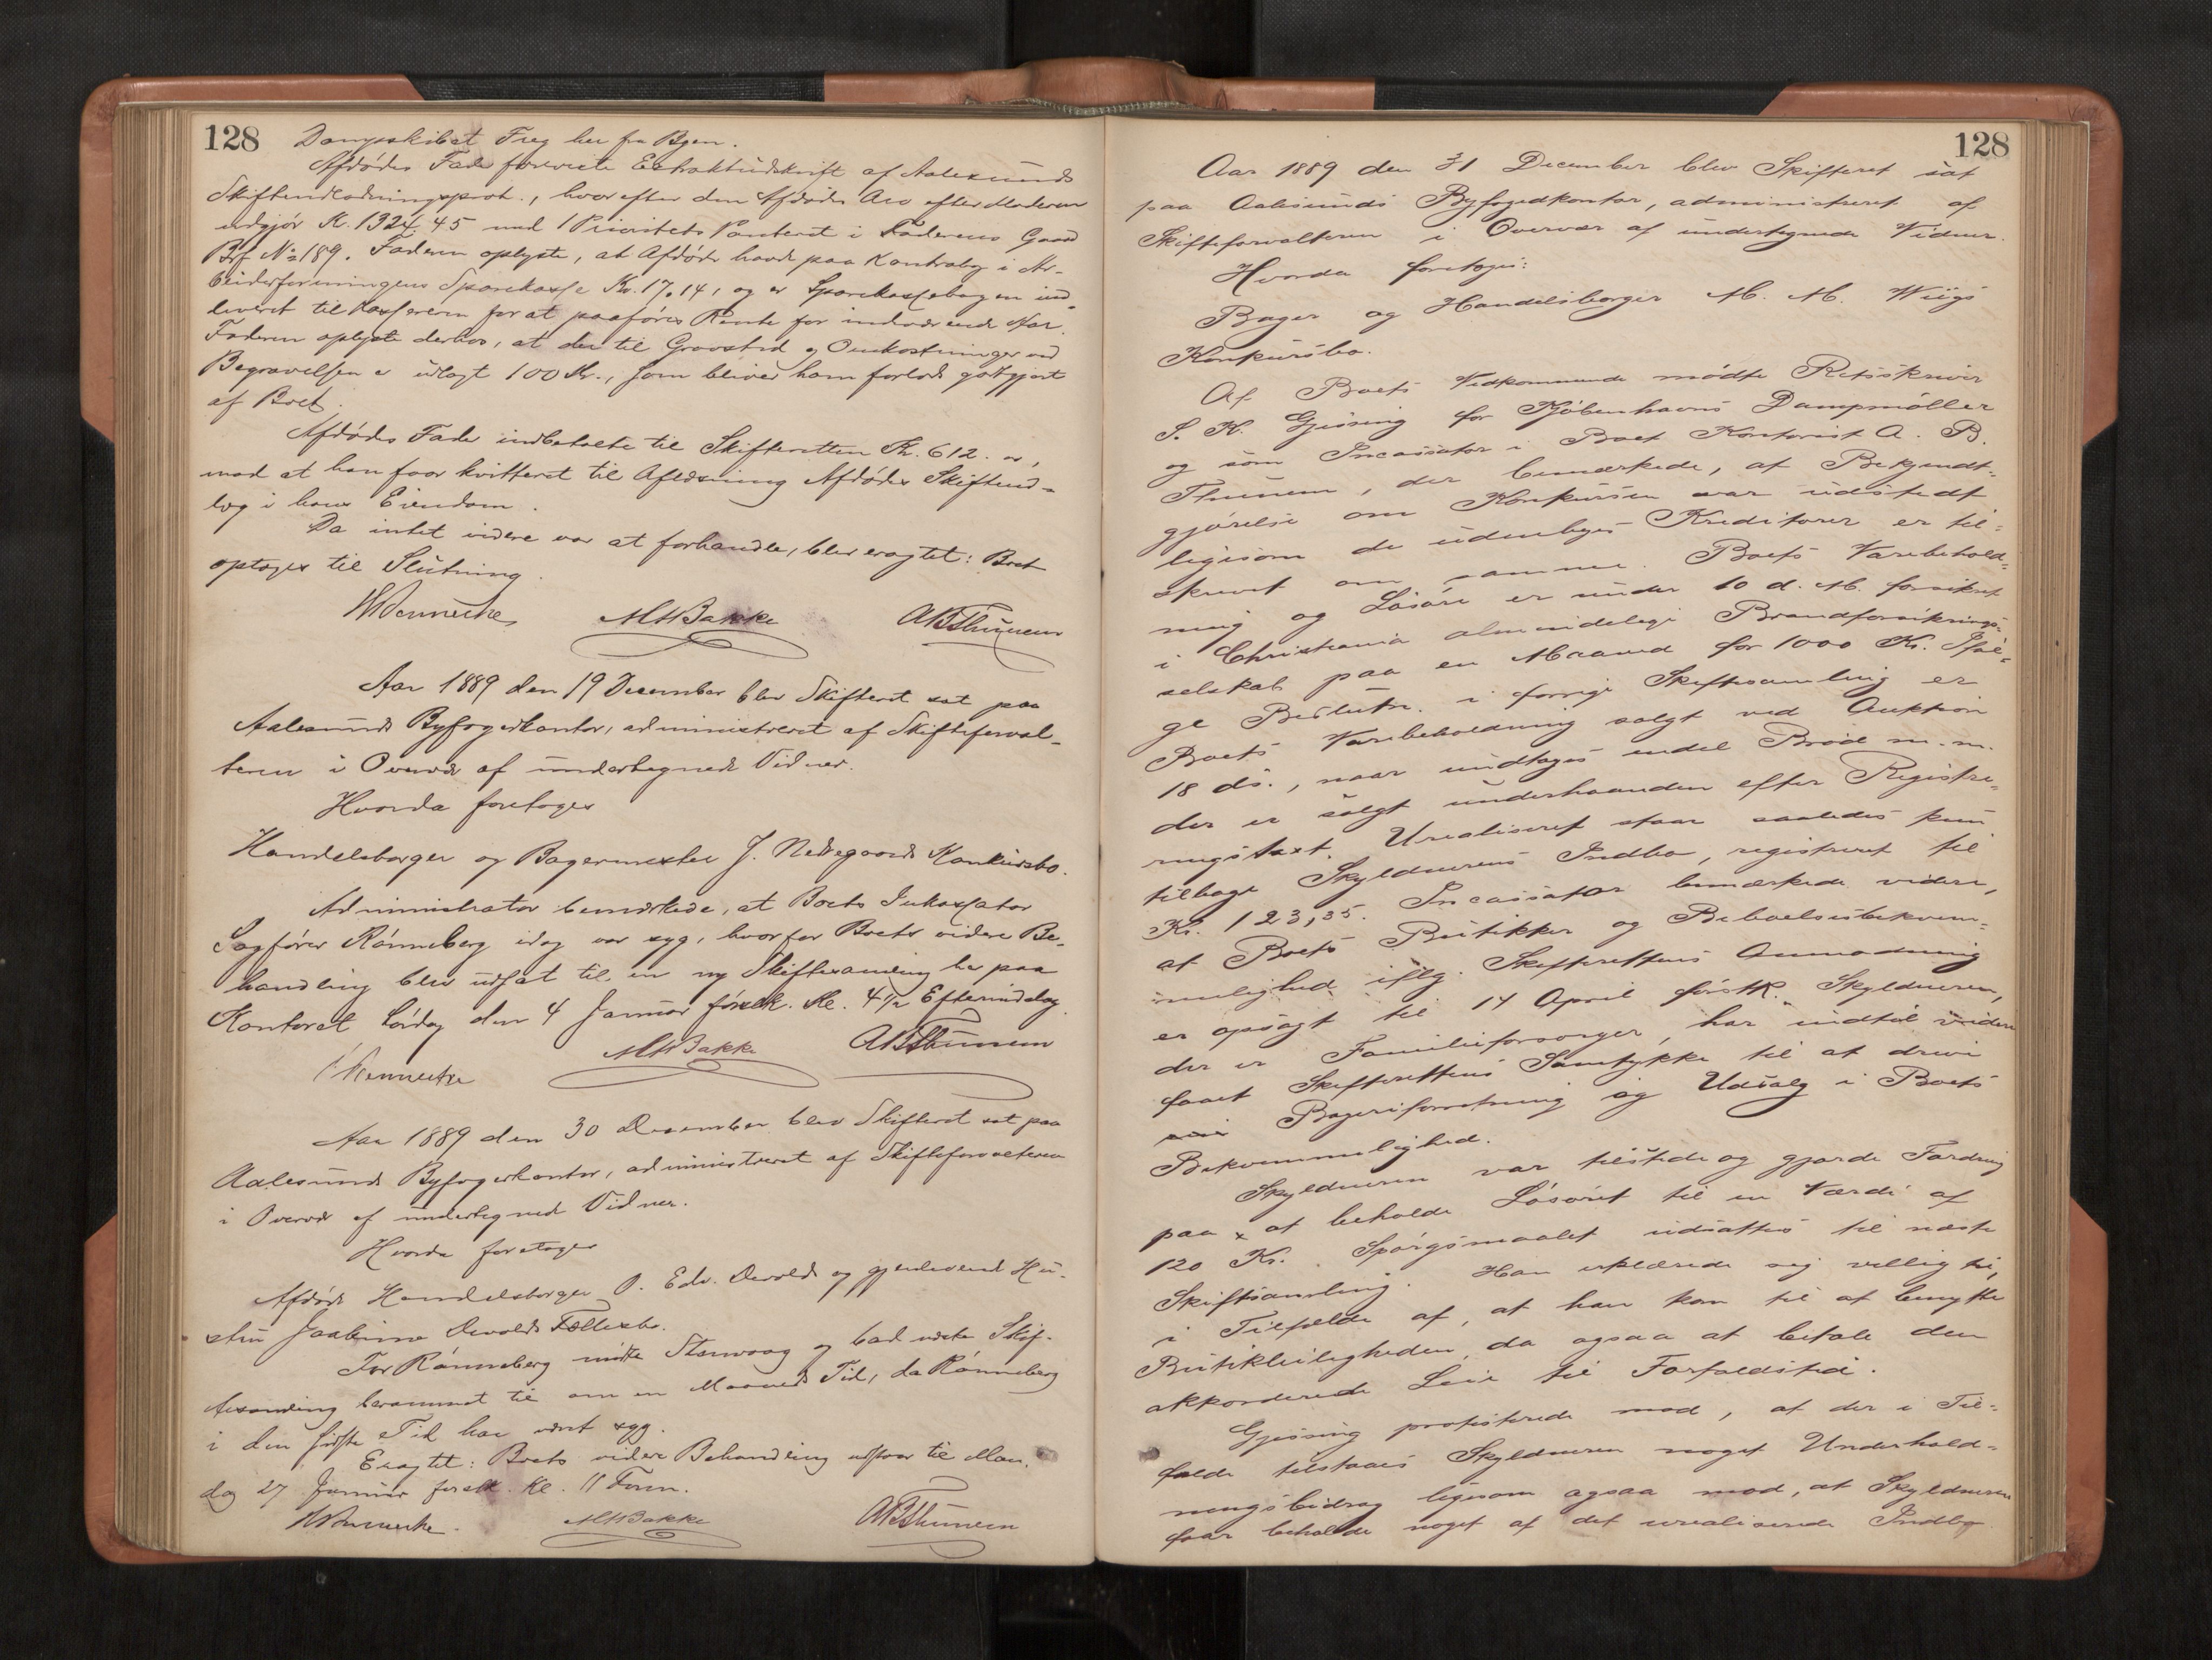 128
Dampskibet Frey her fra Byen.
Afdødes Fader foreviste Extraktudskrift af Aalesunds
Skifteudlodningsprot., hvorefter den Afdødes Arv efter Moderen
udgjør K. 1324,45 med 1 Prioritets Panteret i Faderens Gaard
Brf No 189. Faderen oplyste, at Afdøde havde paa Kontrabog i Ar-
beiderforeningens Sparekasse Kr. 17,14, og er Sparekassebogen ind-
leveret til Kassereren for at paaføres Rente for indeværende Aar.
Faderen oplyste derhos, at der til Gravsted og Omkostninger ved
Begravelsen er udlagt 100 Kr., som blives ham forlods godtgjort
af Boet.
Afdødes Fader indbetalte til Skifteretten Kr. 612.
mod at han faar kvitteret til Aflæsning Afdødes Skifteud-
læg i hans Eiendom.
Da intet videre var at forhandle, blev eragtet: Boet
optages til Slutning.
MBakke ABThunem
Aar 1889 den 19 December blev Skifteret sat paa
Aalesunds Byfogedkontor, administreret af Skifteforval-
teren i Overvær af undertegnede Vidner.
Hvorda foretoges
Handelsborger og Bagermester J. Nedregaards Konkursbo.
Administrator bemærkede, at Boets Inkassator
Sagfører Rønneberg idag var syg, hvorfor Boets videre Be-
handling blev udsat til en ny Skiftesamling her paa
Kontoret Lørdag den 4 Januar førstk. Kl. 4½ Eftermiddag.
MBakke ABThunem
Aar 1889 den 30 December blev Skifteret sat paa
Aalesunds Byfogedkontor, administreret af Skifteforvalteren
i Overvær af undertegnede Vidner.
Hvorda foretoges
Afdøde Handelsborger O. Edv. Devolds og gjenlevende Hu-
stru Jaakime Devolds Fællesbo.
For Rønneberg mødte Storvaag og bad næste Skif-
tesamling berammet til om en Maaneds Tid, da Rønneberg
i den sidste Tid har været syg.
Eragtet: Boets videre Behandling udstaar til Man-
dag 27 Januar førstk. Kl. 11 Form.
MBakke ABThunem
128
Aar 1889 den 31 December blev Skifteret sat
paa Aalesunds Byfogedkontor, administreret af
Skifteforvalteren i Overvær af undertegnede Vidner.
Hvorda foretoges:
Bager og Handelsborger M. M. Wiigs
Konkursbo.
Af Boets Vedkommende mødte Retsskriver
S. K. Gjessing for Kjøbenhavns Dampmøller
og som Incassator i Boet Kontorist A. B.
Thunem, der bemærkede, at Bekjendt-
gjørelse om Konkursen var udstedt
ligesom de udenbyes Kreditorer er til-
skrevet om samme. Boets Varebehold-
ning og Løsøre er under 10 d. M. forsikret
i Christiania almindelige Brandforsikrings-
selskab paa en Maaned for 1000 Kr. Iføl-
ge Beslutn. i forrige Skiftesamling er
Boets Varebeholdning solgt ved Auktion
18 ds., naar undtages endel Brød m.m.
der er solgt underhaanden efter Registre-
ringstaxt. Urealiseret staar saaledes kun
tilbage Skyldnerens Indbo, registreret til
Kr. 123,35. Incassator bemærkede videre,
at Boets Butikker og Beboelsesbekvem-
melighed iflg. Skifterettens Anmodning
er opsagt til 14 April førstk. Skyldneren,
der er Familieforsørger, har indtil videre
faaet Skifterettens Samtykke til at drive
sin Bageriforretning og Udsalg i Boets
Bekvemmelighed.
Skyldneren var tilstede og gjorde Fordring
paa at beholde Løsøret til en Værdi af
120 Kr. Spørgsmaalet udsattes til næste
Skiftsamling. Han erklærede sig villig til,
i Tilfælde af, at han kom til at benytte
Butikleiligheden, da ogsaa at betale den
akkorderede Leie til Forfaldstid.
Gjessing protesterede mod, at der i Til-
fælde tilstaaes Skyldneren noget Underhold-
ningsbidrag ligesom ogsaa mod, at Skyldneren
faar beholde noget af det urealiserede Indbo